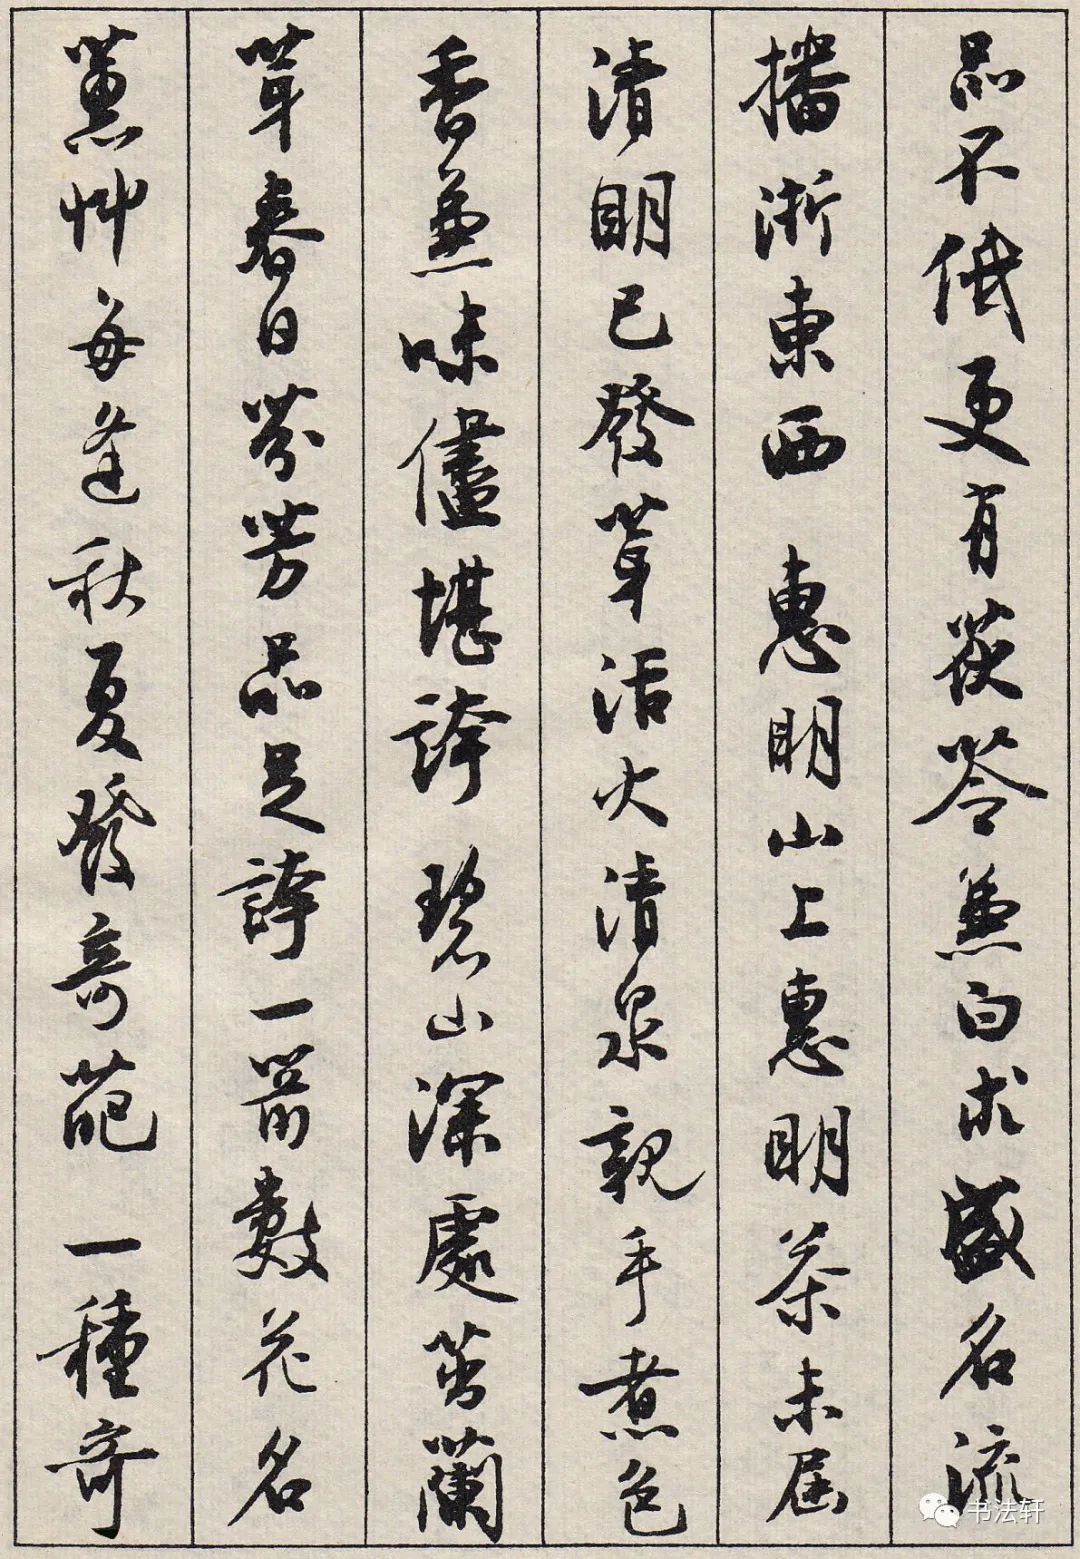 品不低更有茯苓兼白术盛名流
播浙東西 惠明山上惠明茶未屆
清明已發芽活火清泉親手煮色
香兼味儘堪誇 碧山深處茁蘭
芽春日芬芳品足誇一箭數花名
蕙艸每逢秋夏發奇葩 一種奇
书法轩